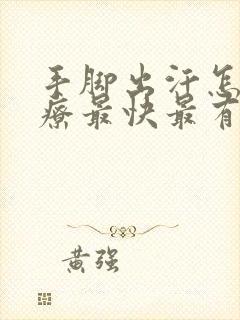 手脚出汗怎
疗最快最有
黄强